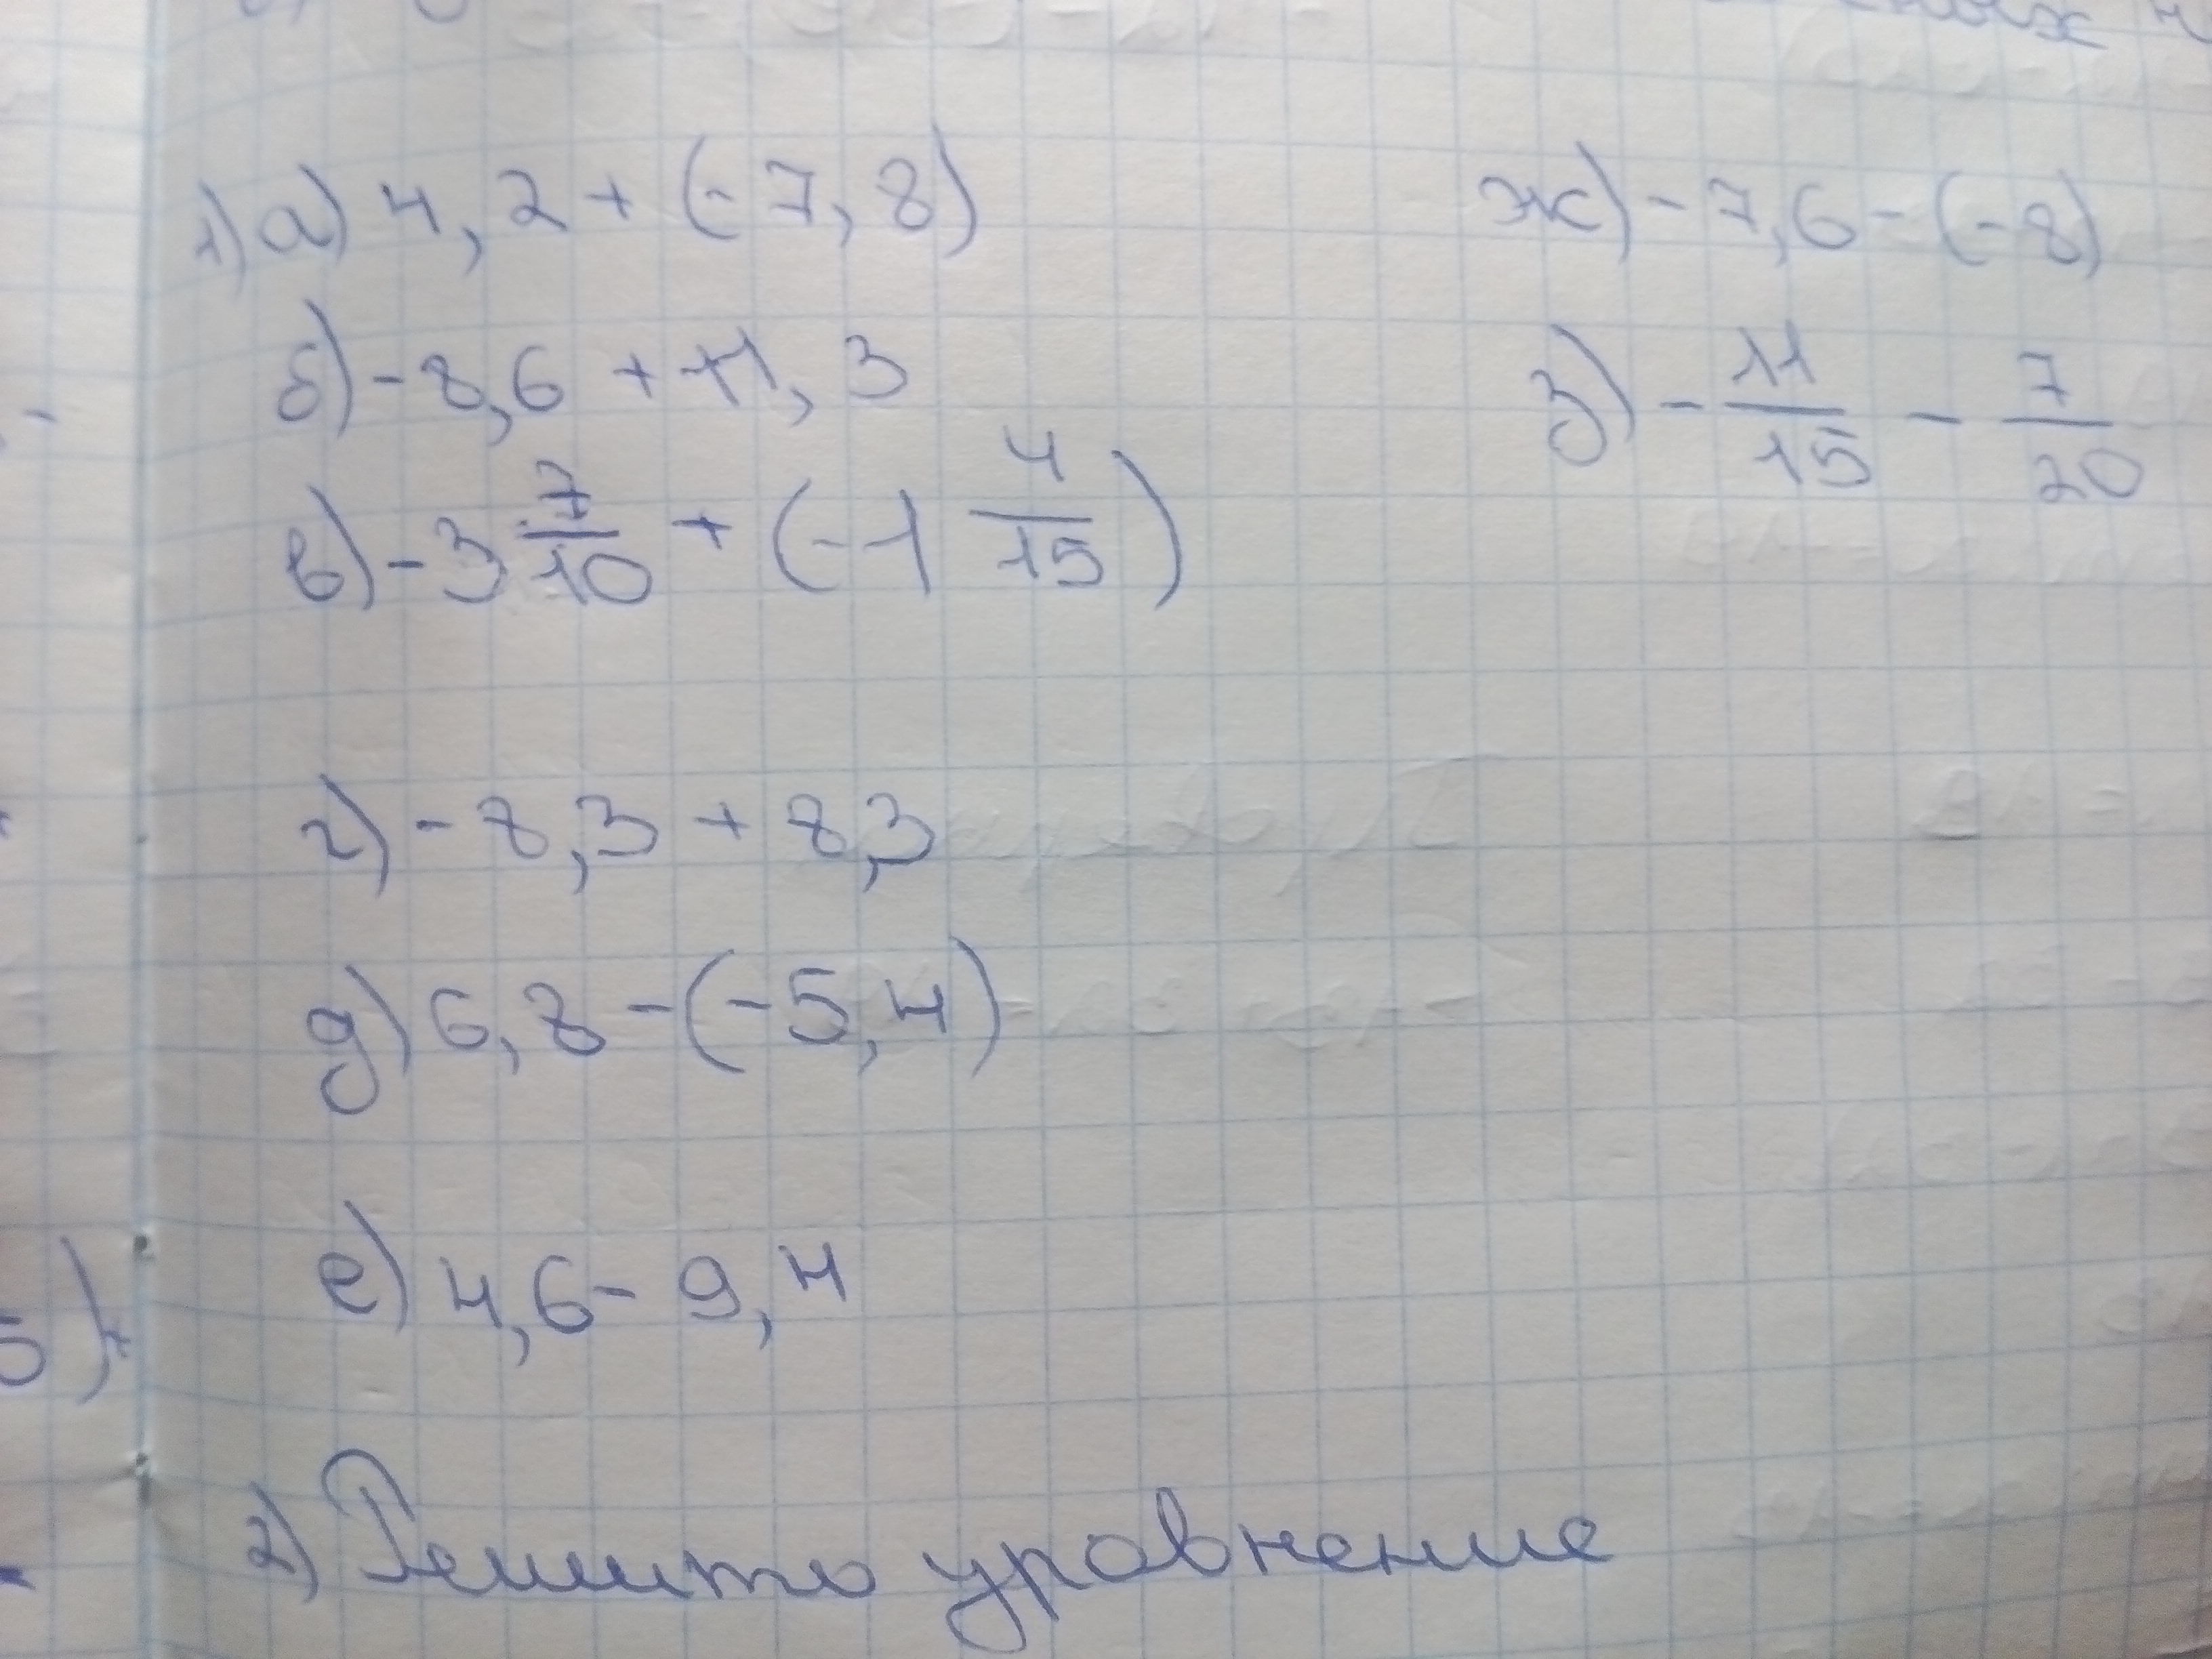 1) а) 4,2 + (-7,8)
б) -8,6 + 11,3
в) -3 7/10 + (-1 4/15)
г) -8,3 + 8,3
д) 6,8 - (-5,4)
е) 4,6 - 9,4
ж) -7,6 - (-8)
з) - 11/15 - 7/20
2) Решить уравнение
5)